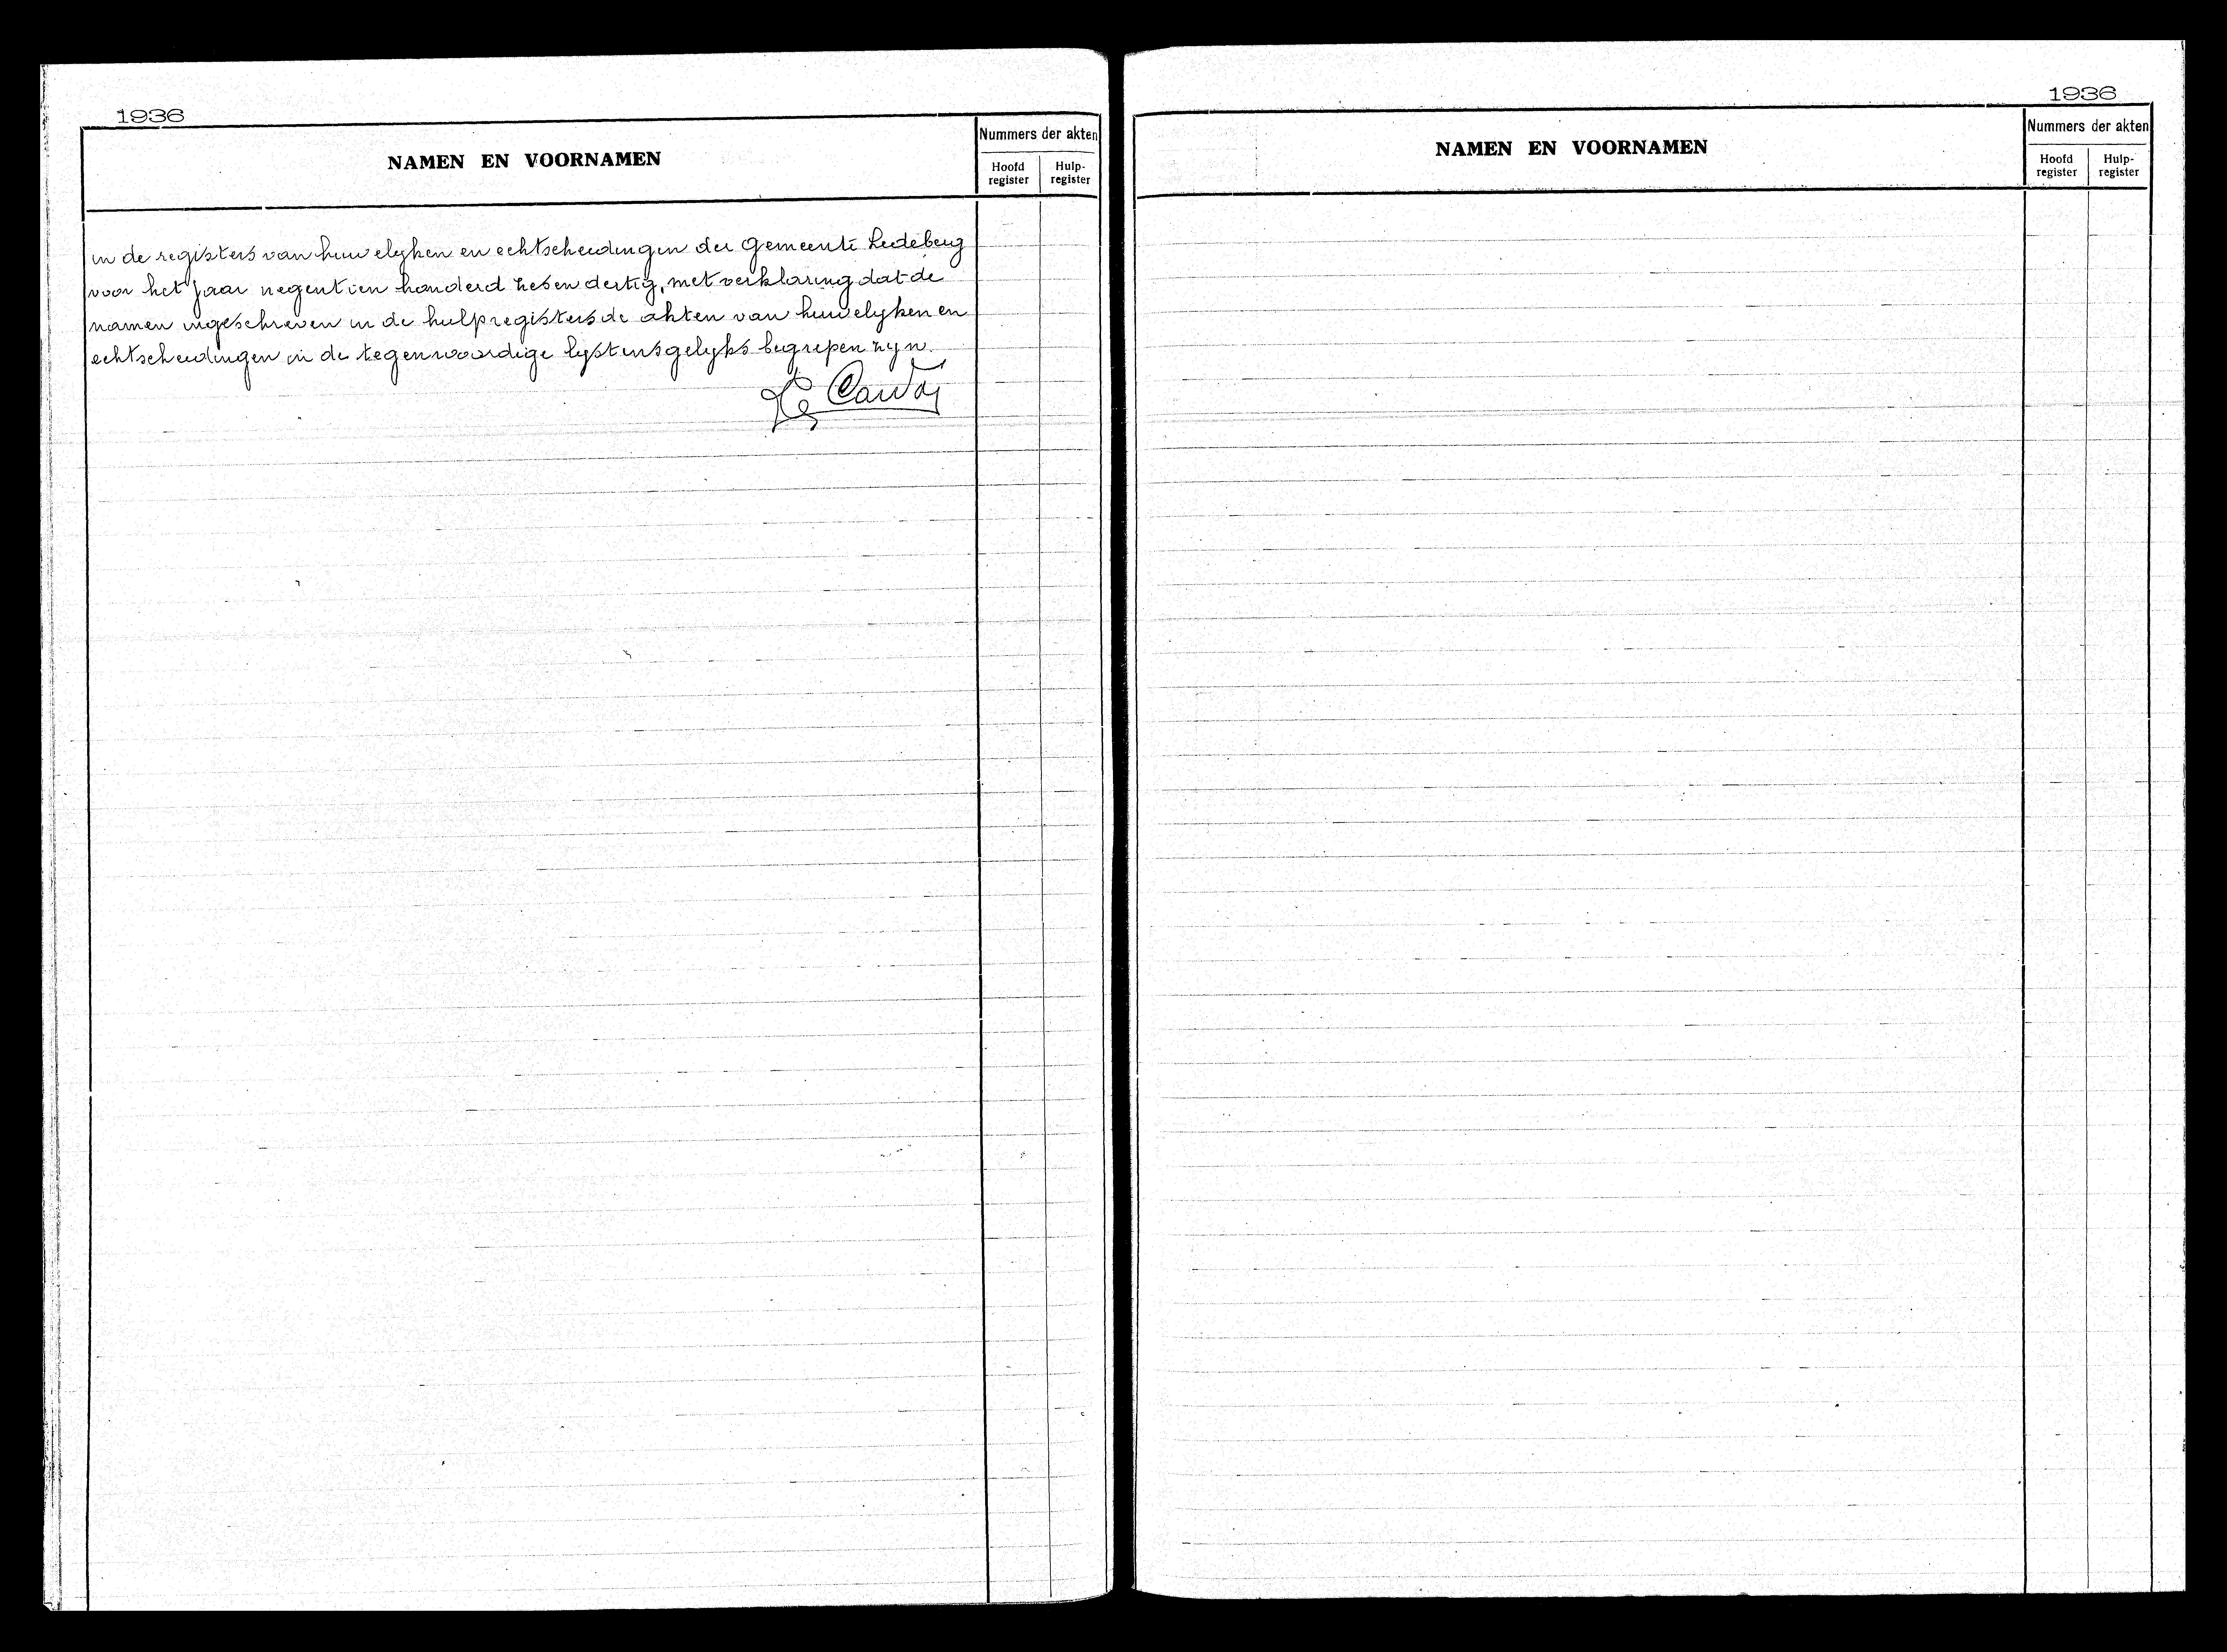 1936
NAMEN EN VOORNAMEN
Nummers der akten
Hoofd register
Hulp-register
in de registers van huwelyken en echtscheidingen der Gemeente Ledeberg
voor het jaar negentien honderd zes en dertig, met verklaring dat de
namen ingeschreven in de hulpregisters de akten van huwelyken en
echtscheidingen in de tegenwoordige lysten insgelyks begrepen zyn.
1936
NAMEN EN VOORNAMEN
Nummers der akten
Hoofd register
Hulp-register